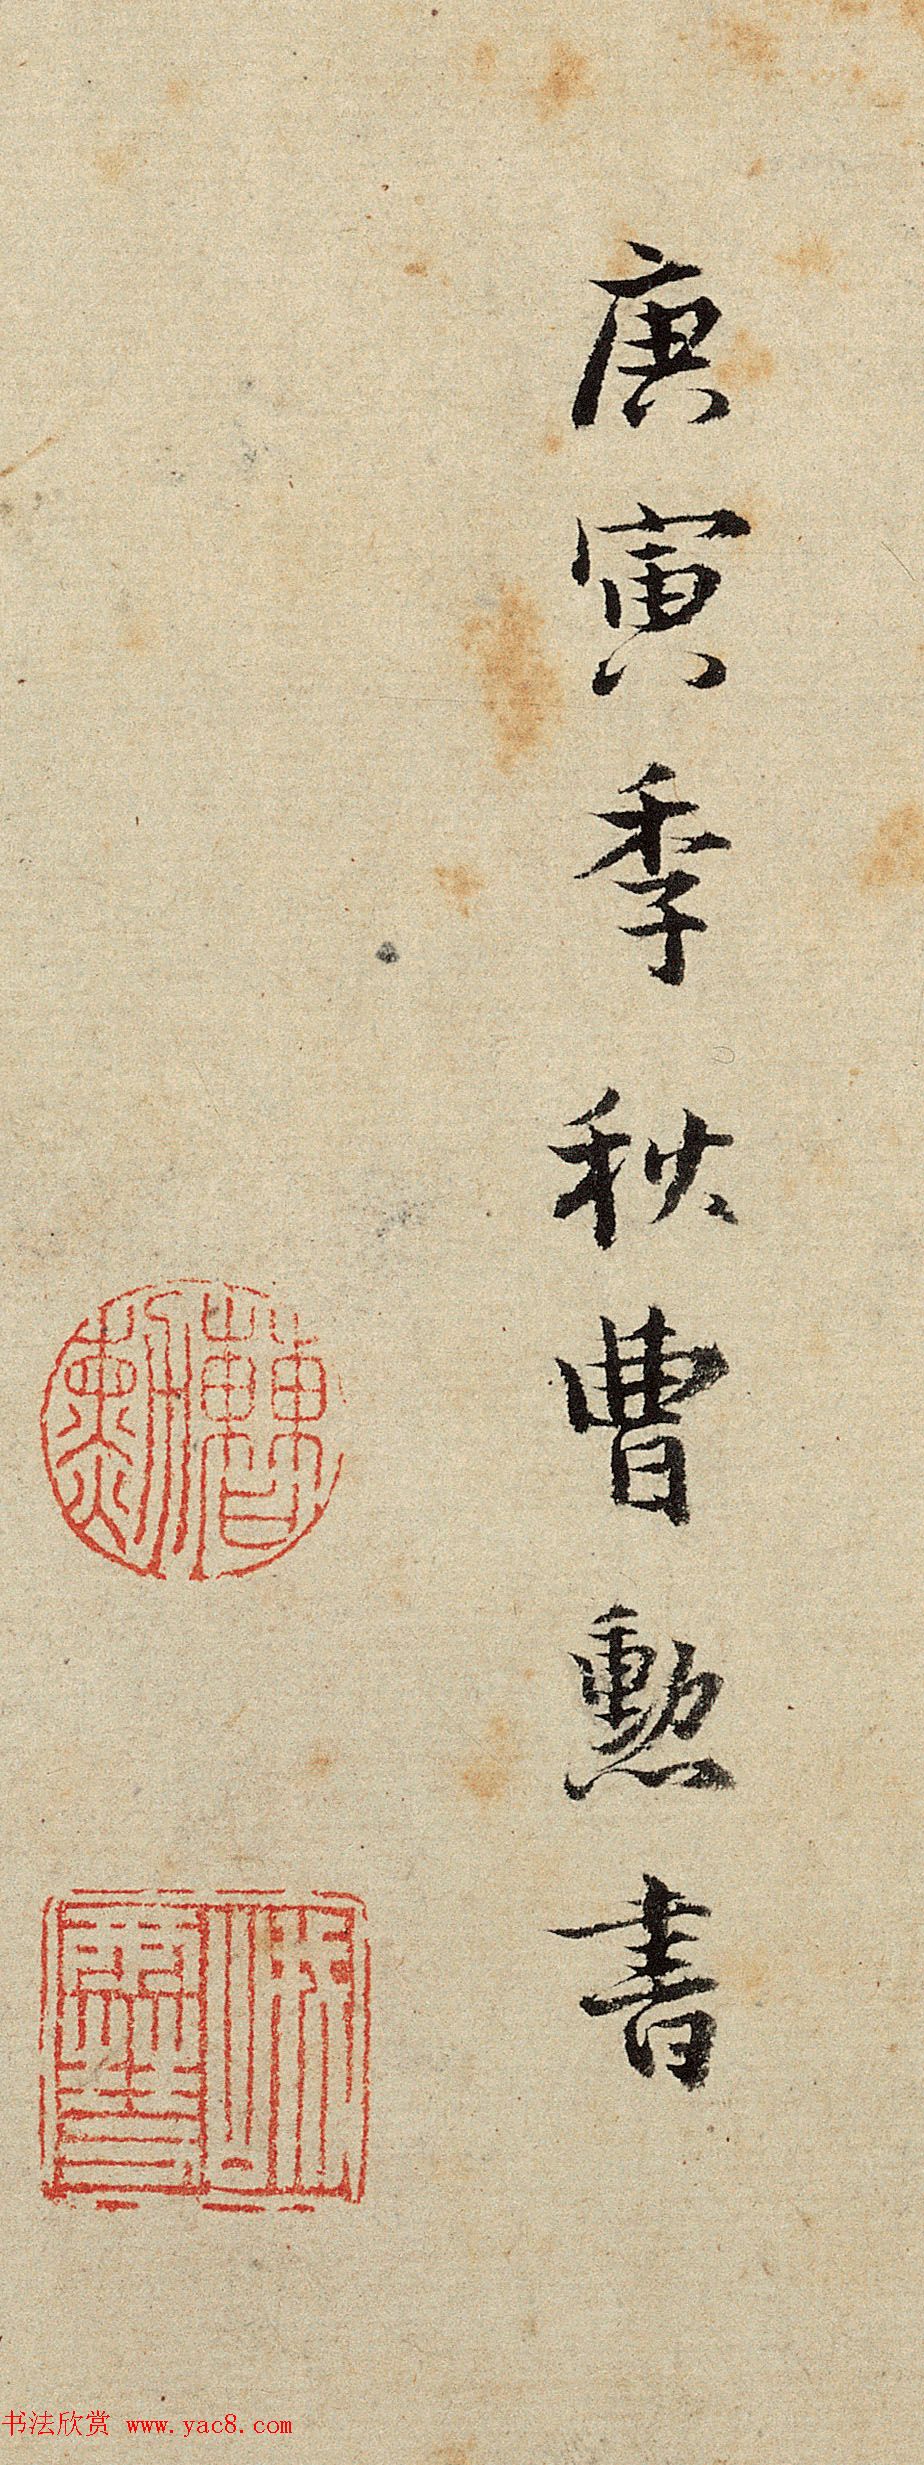 庚寅季秋曹勲書
书法欣赏 www.yac8.com